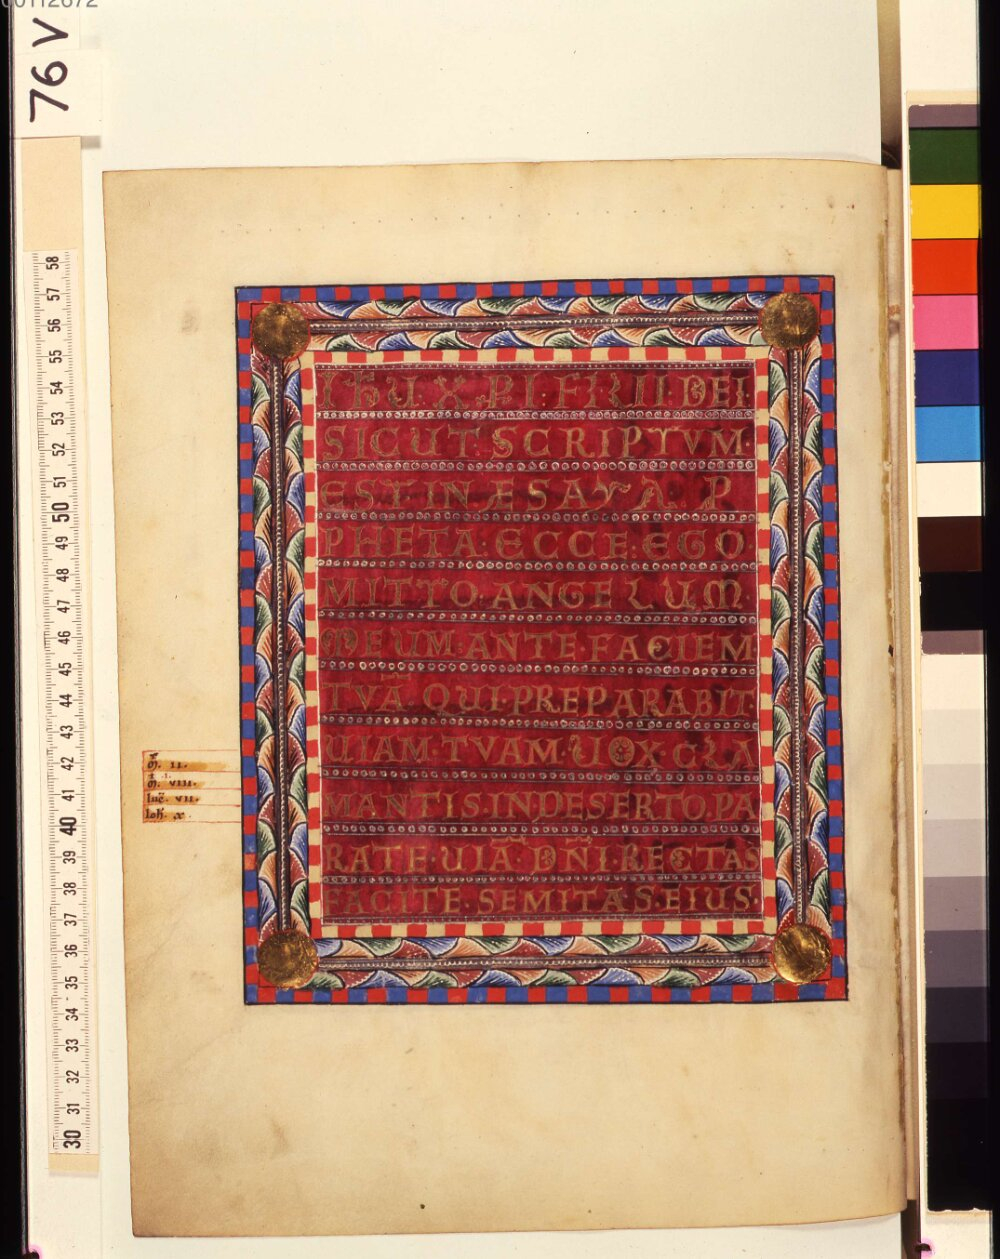 00112672
76 V
IHU·XPI·FILII·DEI·
SICUT·SCRIPTVM·
EST IN ÆSAYA P
PHETA·ECCE·EGO
MITTO·ANGELUM
MEUM·ANTE·FACIEM
TVA·QUI·PREPARABIT·
UIAM·TVAM·UOX·CLA
MANTIS·IN DESERTO·PA
RATE·UIA DNI·RECTAS
FACITE·SEMITAS·EIUS·
M. II.
M. VIII.
luc. VII.
Ioh. X.
58
57
56
55
54
53
52
51
50
49
48
47
46
45
44
43
42
41
40
39
38
37
36
35
34
33
32
31
30